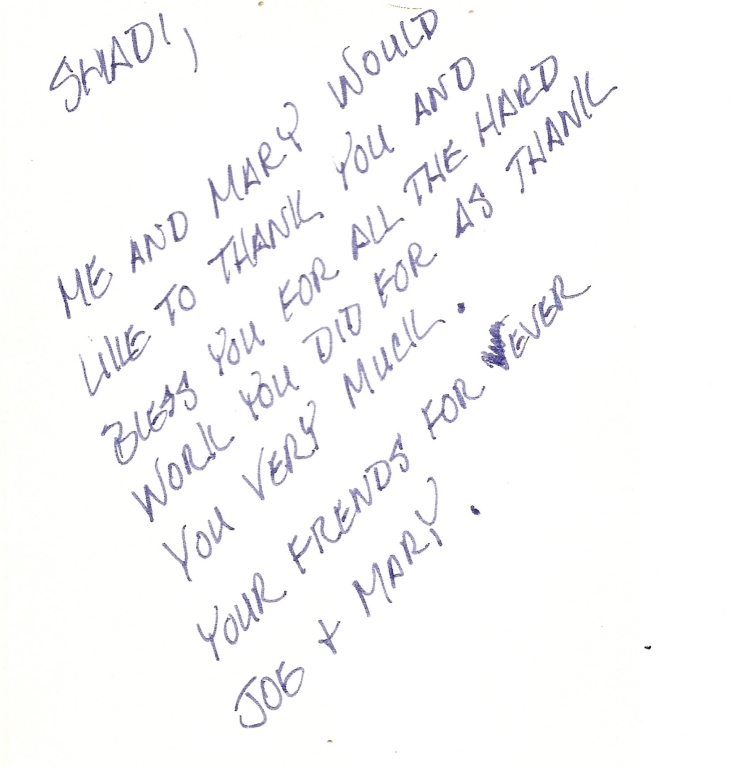 SHADI,
ME AND MARY WOULD
LIKE TO THANK YOU AND
BLESS YOU FOR ALL THE HARD
WORK YOU DID FOR AS THANK
YOU VERY MUCH.
YOUR FRENDS FOR EVER
JOE & MARY.